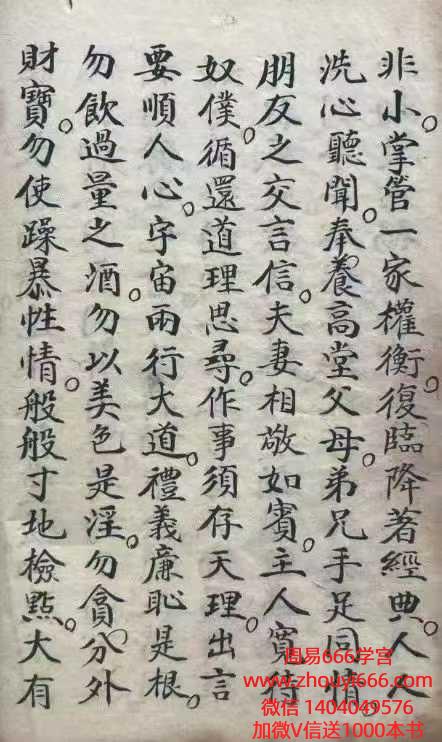 非小。掌管一家權衡。復臨降著經典。人人
洗心聽聞。奉養高堂父母。弟兄手足同情。
朋友之交言信。夫妻相敬如賓。主人寬待
奴僕。循還道理思尋。作事須存天理。出言
要順人心。字宙兩行大道。禮義廉恥是根。
勿飲過量之酒。勿以美色是淫。勿貪分外
財寶。勿使躁暴性情。般般寸地檢點。大有
周易666学宫
www.zhouyi666.com
微信 1404049576
加微V信送1000本书